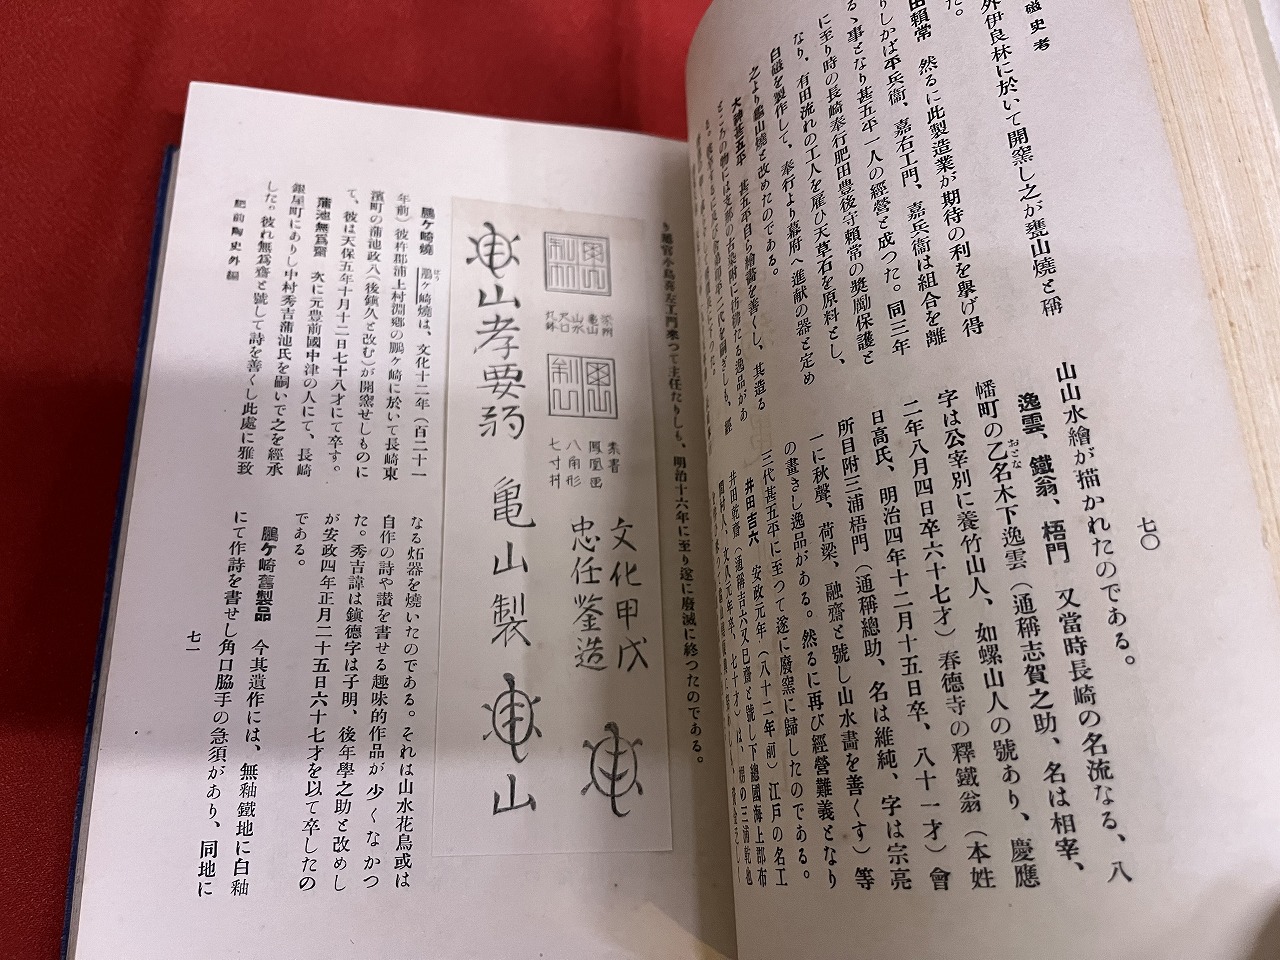 磁史考
外伊良林に於いて開窯し之が甕山燒と稱
た。
田賴常　然るに此製造業が期待の利を擧げ得
りしかば平兵衞、嘉右工門、嘉兵衞は組合を離
る事となり甚五平一人の經營と成つた。同三年
に至り時の長崎奉行肥田豊後守賴常の奬勵保護と
なり、有田流れの工人を雇ひ天草石を原料とし、
白磁を製作して、奉行より幕府へ進献の器と定め
之より龜山燒と改めたのである。
大神甚五平　甚五平自ら繪畵を善くし、其造る
ところの物には支那の古染附に彷彿たる逸品があ
山山水繪が描かれたのである。
逸雲、鐵翁、梧門　又當時長崎の名流なる、八
幡町の乙名木下逸雲（通稱志賀之助、名は相宰、
おとな
字は公宰別に養竹山人、如螺山人の號あり、慶應
二年八月四日卒六十七才）春德寺の釋鐵翁（本姓
日高氏、明治四年十二月十五日卒、八十一才）會
所目附三浦梧門（通稱總助、名は維純、字は宗亮
一に秋聲、荷梁、融齋と號し山水畵を善くす）等
の畫きし逸品がある。然るに再び經營難義となり
三代甚五平に至つて遂に廢窯に歸したのである。
井田吉六　安政元年（八十二年前）江戸の名工
井田乾齋（通稱吉六又巳齋と號し下總國海上郡布
七〇
り鑑官小島喜左工門來つて主任たりしも、明治十六年に至り遂に廢滅に終つたのである。
染附
龜山
山水
大口
丸鉢
素書
鳳凰画
八角形
七寸村
文化甲戊
忠任鉴造
山孝要弱　亀山製　山
鵬ケ崎燒　鵬ケ崎燒は、文化十二年（百二十一
ほう
年前）彼杵郡浦上村淵郷の鵬ケ崎に於いて長崎東
濱町の蒲池政八（後鎭久と改む）が開窯せしものに
て、彼は天保五年十月十二日七十八才にて卒す。
蒲池無爲齋　次に元豊前國中津の人にて、長崎
銀屋町にありし中村秀吉蒲池氏を嗣いで之を經承
した。彼れ無爲齋と號して詩を善くし此處に雅致
なる炻器を燒いたのである。それは山水花鳥或は
自作の詩や讃を書せる趣味的作品が少くなかつ
た。秀吉諱は鎭德字は子明、後年學之助と改めし
が安政四年正月二十五日六十七才を以て卒したの
である。
鵬ケ崎舊製品　今其遺作には、無釉鐵地に白釉
にて作詩を書せし角口脇手の急須があり、同地に
肥前陶史外編
七一